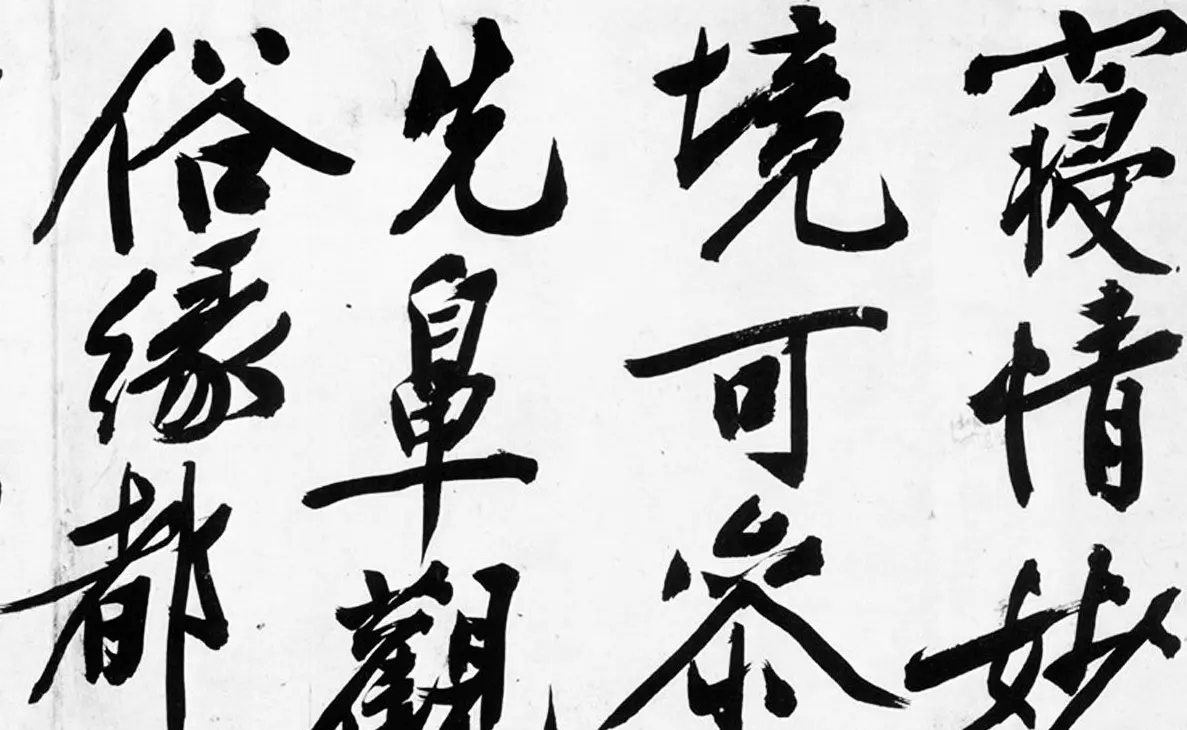 寝情妙
境可參
先皐觀
俗縁都